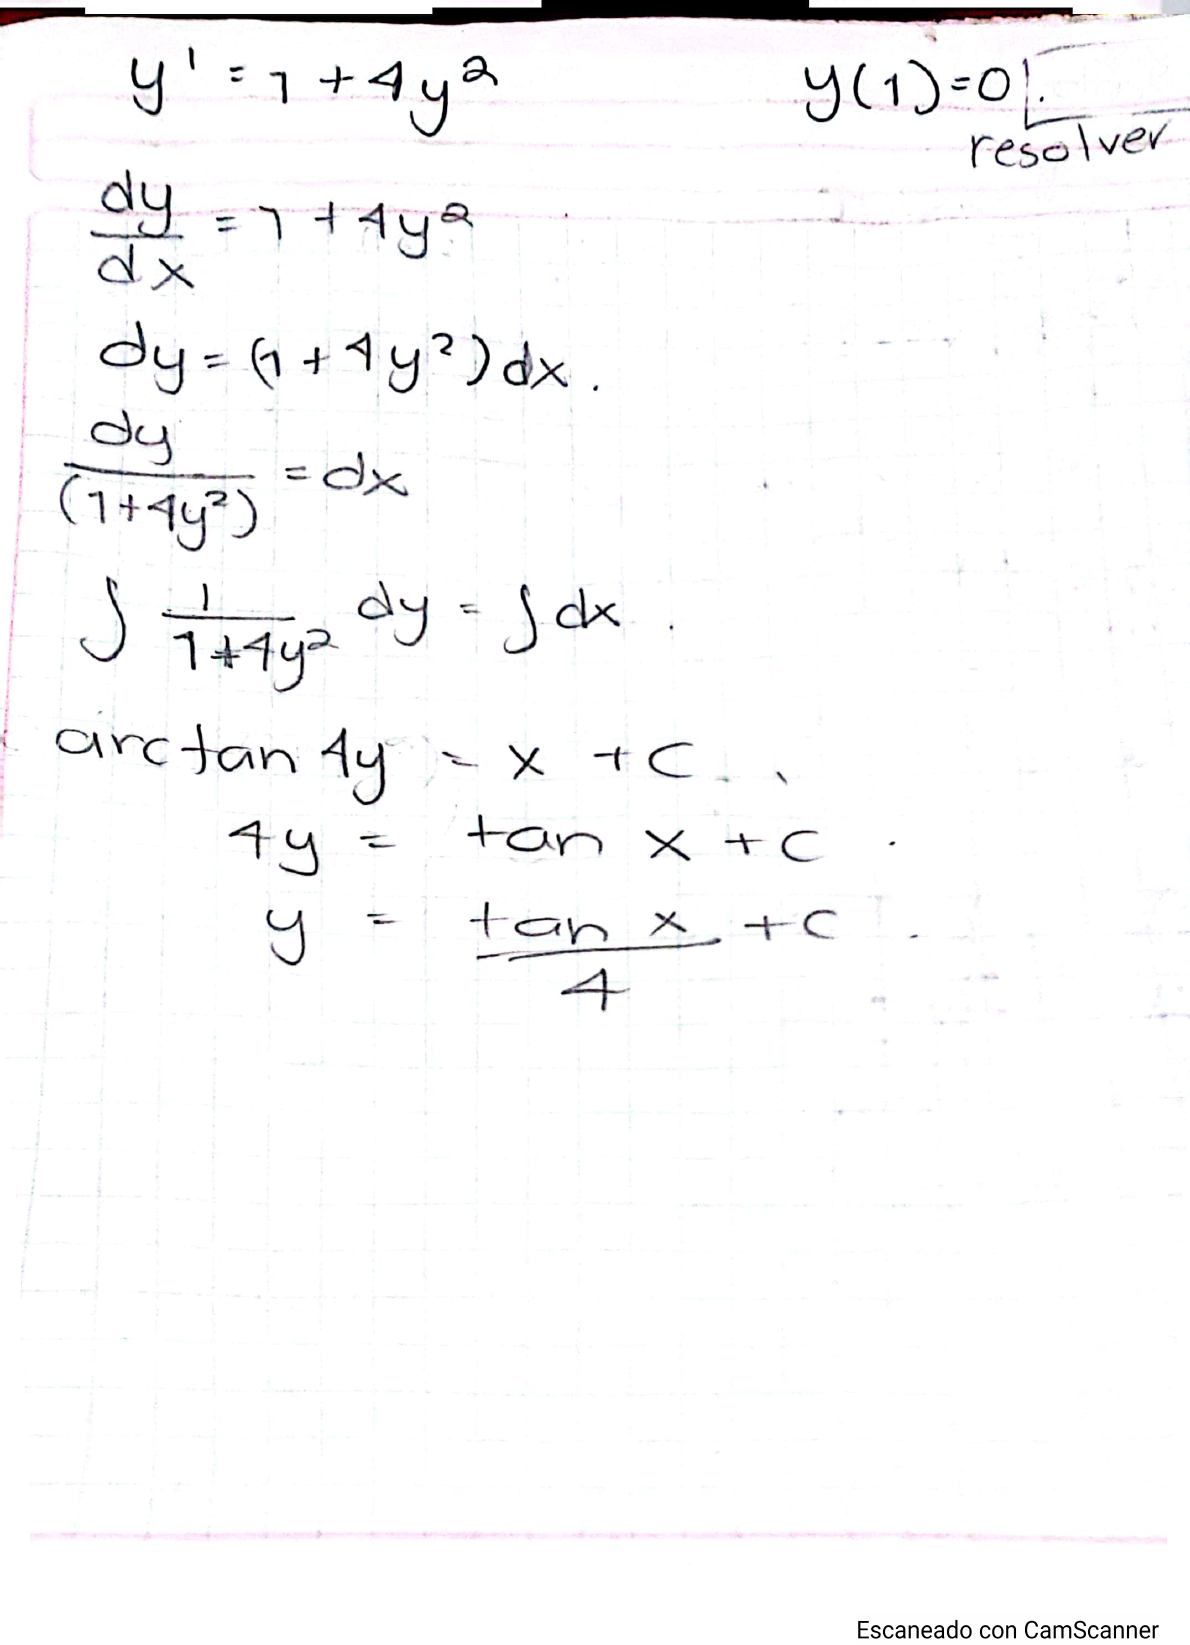 y' = 1 + 4y² y(1)=0
resolver
dy/dx = 1 + 4y²
dy = (1 + 4y²) dx.
dy/(1+4y²) = dx
∫ 1/(1+4y²) dy = ∫ dx.
arctan 4y = x + C
4y = tan x + C
y = tan x/4 + C
Escaneado con CamScanner